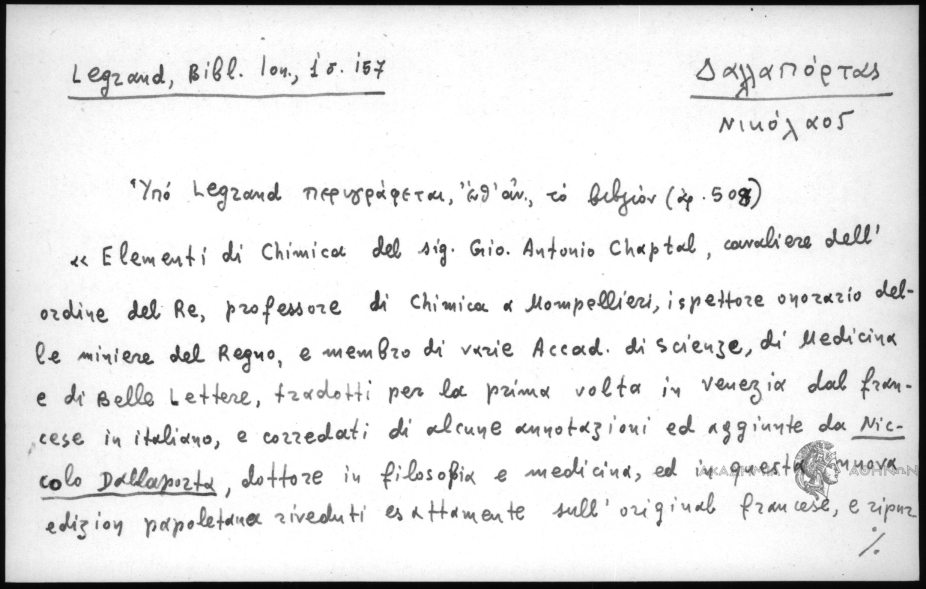 Legrand, Bibl. Ion., 1 σ. 157
Δαλλαπόρτας
Νικόλαος
Ὑπό Legrand περιγράφεται, ἔνθ' ἀν., τό βιβλίον (ἀρ. 508)
« Elementi di Chimica del sig. Gio. Antonio Chaptal, cavaliere dell'
ordine del Re, professore di Chimica a Mompellieri, ispettore onorario del-
le miniere del Regno, e membro di varie Accad. di Scienze, di Medicina
e di Belle Lettere, tradotti per la prima volta in Venezia dal fran-
cese in italiano, e corredati di alcune annotazioni ed aggiunte da Nic-
colo Dallaporta, dottore in filosofia e medicina, ed in questa nuova
edizion papoletana riveduti esattamente sull' original francese, e ripur
%
ΑΚΑΔΗΜΙΑ ΑΘΗΝΩΝ